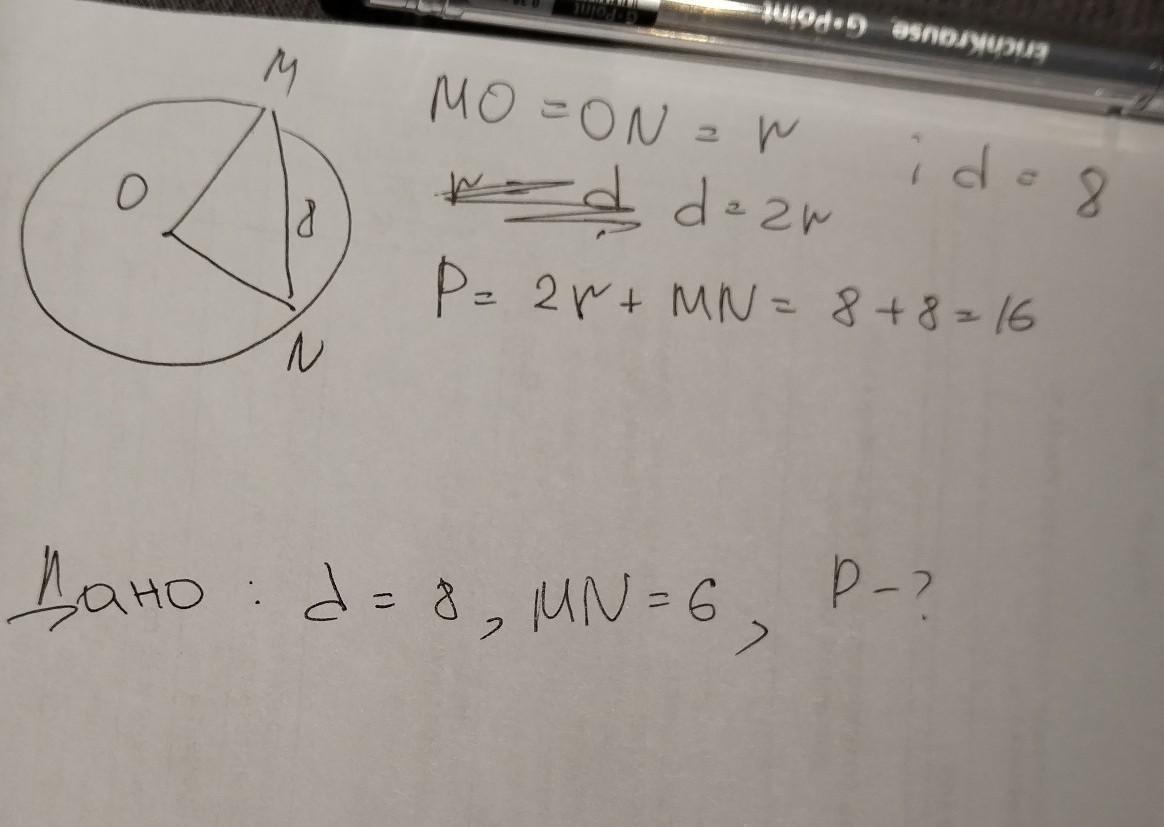 ErichKrause G-Point
G-Point
M
MO = ON = r
i d = 8
O
r = d
d = 2r
8
P = 2r + MN = 8 + 8 = 16
N
Дано : d = 8, MN = 6, P - ?